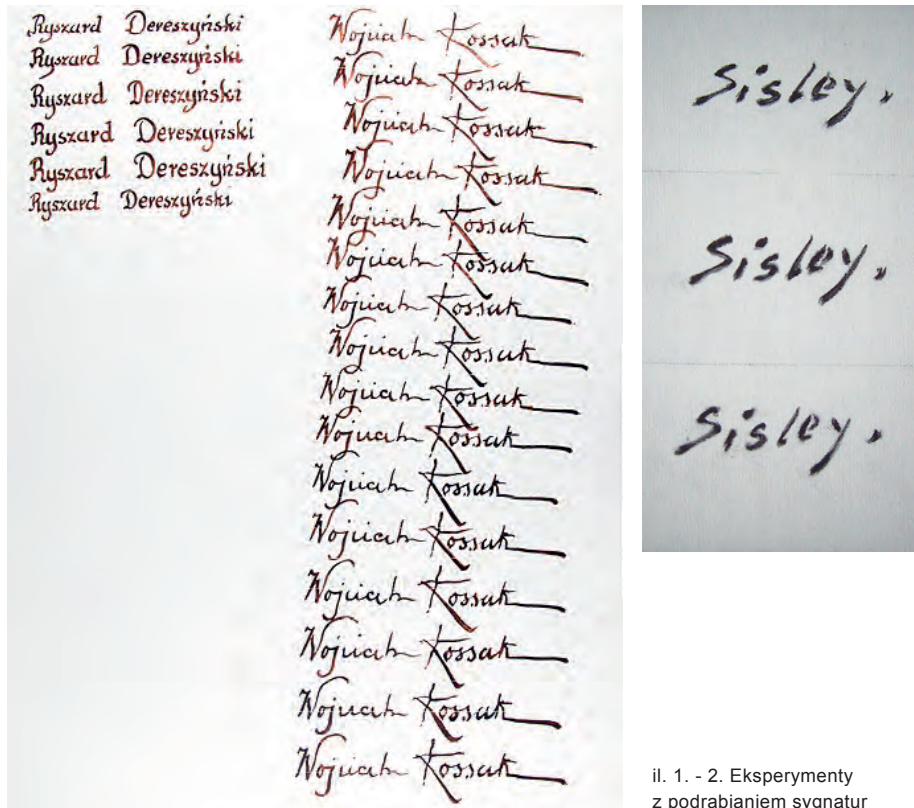 Ryszard Dereszyński
Ryszard Dereszyński
Ryszard Dereszyński
Ryszard Dereszyński
Ryszard Dereszyński
Ryszard Dereszyński
Wojciech Kossak
Wojciech Kossak
Wojciech Kossak
Wojciech Kossak
Wojciech Kossak
Wojciech Kossak
Wojciech Kossak
Wojciech Kossak
Wojciech Kossak
Wojciech Kossak
Wojciech Kossak
Wojciech Kossak
Wojciech Kossak
Wojciech Kossak
Wojciech Kossak
Wojciech Kossak
Sisley.
Sisley.
Sisley.
il. 1. - 2. Eksperymenty
z podrabianiem sygnatur